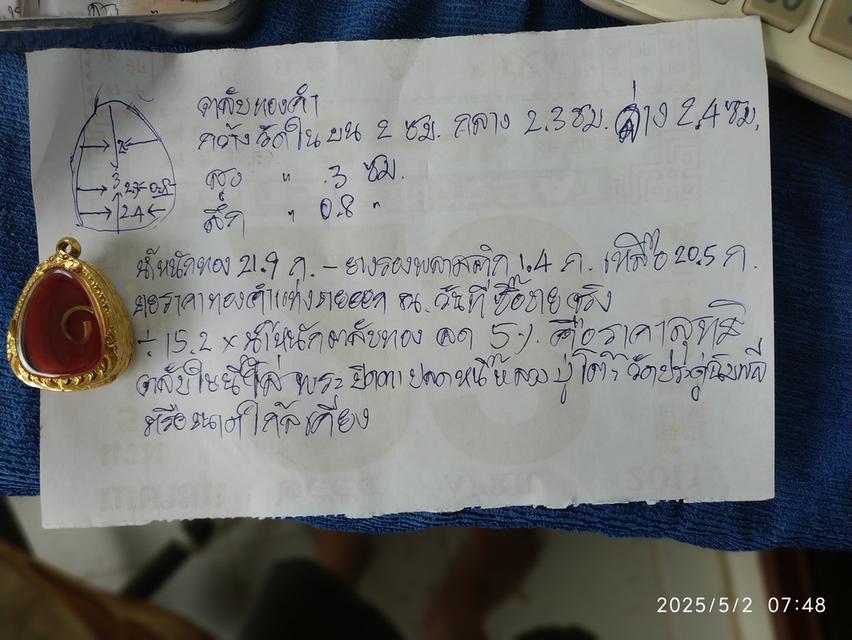 ตลับทองคำ
กว้าง วัดใน บน 2 ซม. กลาง 2.3 ซม. ล่าง 2.4 ซม.
สูง " .3 ซม.
ลึก " 0.8 "
2
3
2.4
น้ำหนักทอง 21.9 ก. - ยางรองพลาสติก 1.4 ก. เหลือ 20.5 ก.
ราคาทองคำแท่งขายออก ณ. วันที่ ซื้อขายจริง
÷ 15.2 x น้ำหนักตลับทอง ลด 5% คือราคาสุทธิ
ตลับใบนี้ใส่ พระ ปิดตา ปลดหนี้ หลวงปู่โต๊ะ วัดประดู่ฉิมพลี
หรือขนาดใกล้เคียง
2025/5/2 07:48